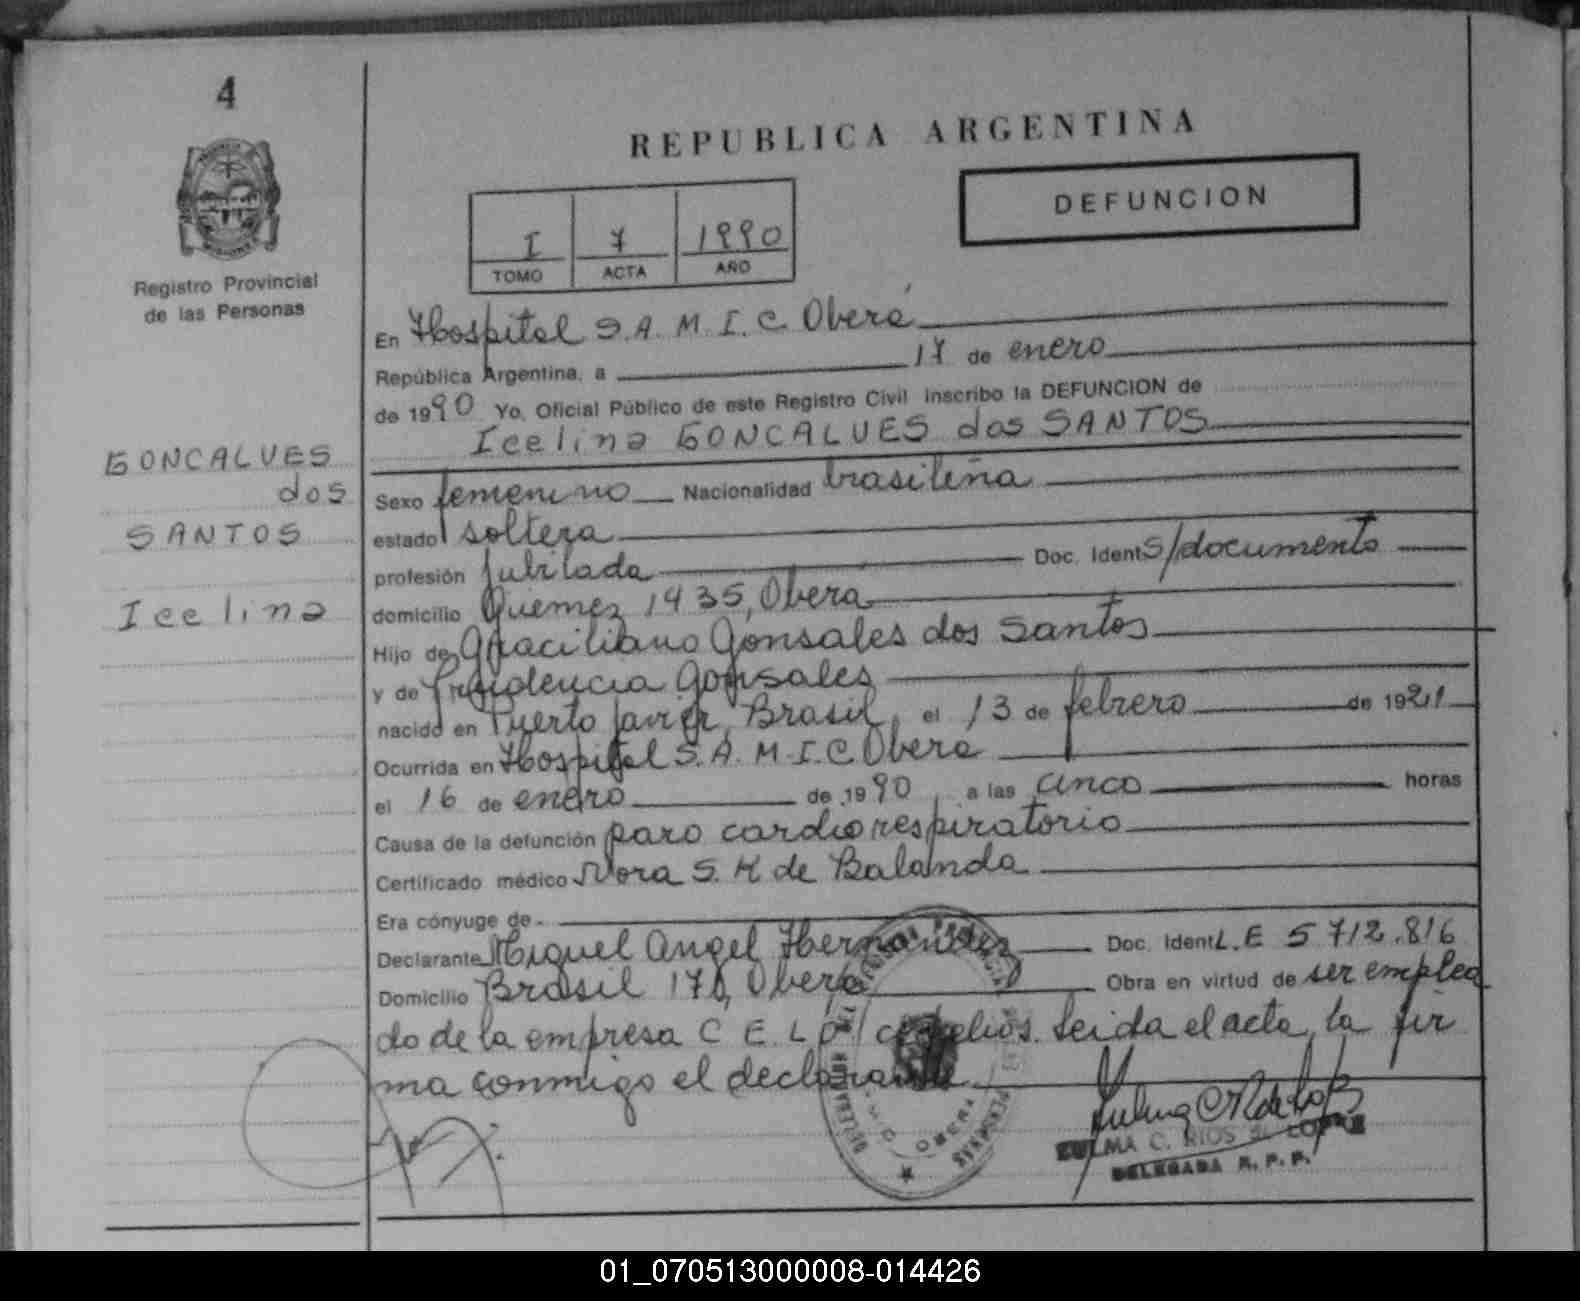 4
REPUBLICA ARGENTINA
DEFUNCION
I 7 1990
TOMO ACTA AÑO
Registro Provincial
de las Personas
En Hospital S.A.M.I.C. Oberá
República Argentina, a 17 de enero
de 1990 Yo, Oficial Público de este Registro Civil inscribo la DEFUNCION de
Icelina GONCALVES dos SANTOS
GONCALVES
dos
SANTOS
Icelina
Sexo femenino Nacionalidad brasileña
estado soltera
profesión jubilada Doc. Ident S/documento
domicilio Guemes 1435, Oberá
Hijo de Graciliano Gonsales dos Santos
y de Gonsales
nacido en Puerto Javier, Brasil, el 13 de febrero de 1921
Ocurrida en Hospital S.A.M.I.C. Oberá
el 16 de enero de 1990, a las cinco horas
Causa de la defunción paro cardiorespiratorio
Certificado médico Nora S. K de Balanda
Era cónyuge de -
Declarante Miguel Angel Hernandez Doc. Ident L.E 5 712.816
Domicilio Brasil 170, Oberá Obra en virtud de ser emplea
do de la empresa C E L O / cepelios. Leida el acta, la fir
ma conmigo el declarante
ZULMA C. RIOS de LOPEZ
DELEGADA R. P. P.
01_070513000008-014426